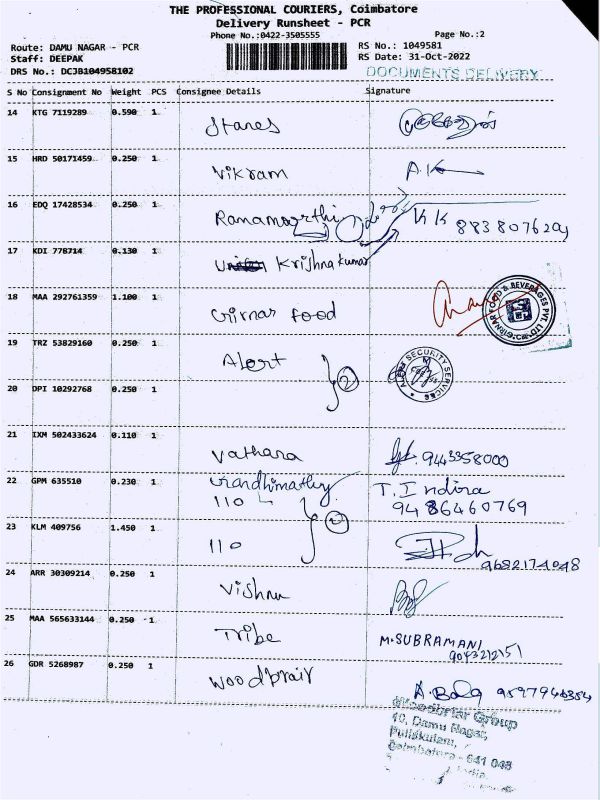 THE PROFESSIONAL COURIERS, Coimbatore
Delivery Runsheet - PCR
Phone No.:0422-3505555
Page No.:2
Route: DAMU NAGAR - PCR
Staff: DEEPAK
DRS No.: DCJB104958102
RS No.: 1049581
RS Date: 31-Oct-2022
DOCUMENTS DELIVERY
S No Consignment No Weight PCS Consignee Details Signature
14 KTG 7119289 0.590 1 Stanes
15 HRD 50171459 0.250 1 Vikram A.K
16 EDQ 17428534 0.250 1 Ramamoorthi KK
17 KDI 778714 0.130 1 Krishnakumar
18 MAA 292761359 1.100 1 Girnar food
GIRNAR FOOD & BEVERAGES PVT. LTD.
19 TRZ 53829160 0.250 1 Alert
ALERT SECURITY SERVICES
20 DPI 10292768 0.250 1 2
21 IXM 502433624 0.110 1 Vathara 9443358000
22 GPM 635510 0.230 1 Gandhimathy T. Indira
110 9486460769
23 KLM 409756 1.450 1 110 2
9682174048
24 ARR 30309214 0.250 1 Vishnu
25 MAA 565633144 0.250 1 Tribe M.SUBRAMANI
26 GDR 5268987 0.250 1 Woodbrair
Woodbriar Group
10, Damu Nagar,
Puliakulam,
Coimbatore - 641 045
India.